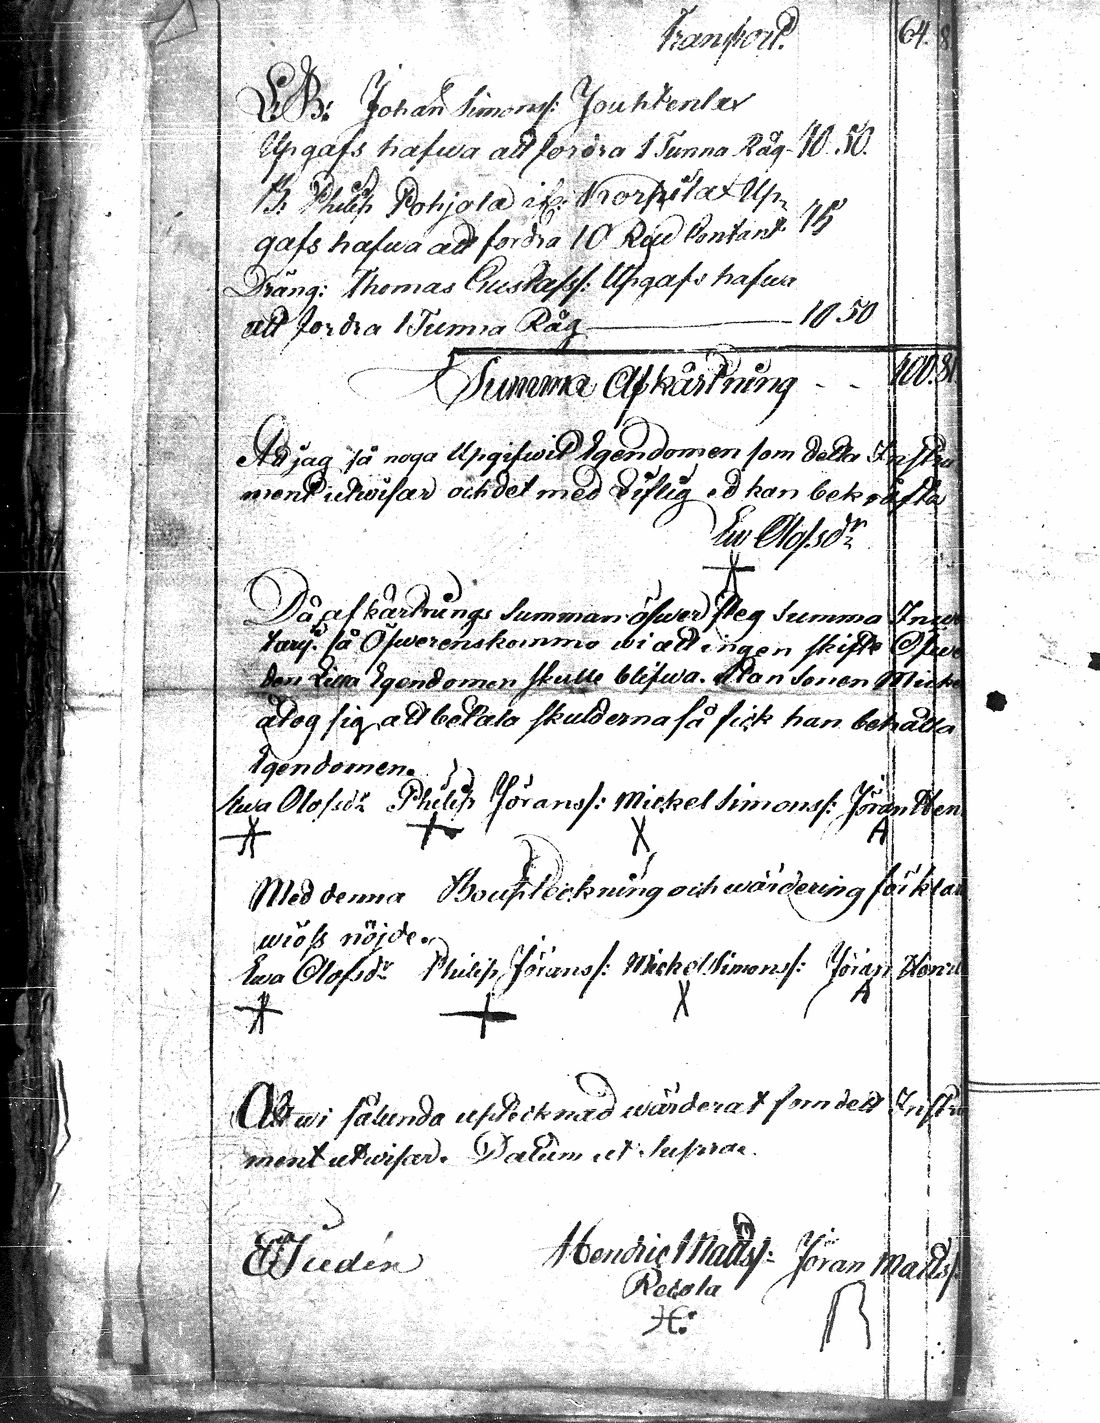 Transport. 64. 8
L. B: Johan Simonss: Jouhtenlax
Upgafs hafwa att fordra 1 Tunna Råg - 10. 50.
B: Philip Pohjola if: Korpilax Up=
gafs hafwa att fordra 10 Rd Contant 15
Dräng: Thomas Gustafss: Upgafs hafwa
att fordra 1 Tunna Råg 10 50
Summa Afkårtning - - 100. 81
At jag så noga Upgifwit Egendomen som detta Instru
ment utwisar och det med liflig ed kan bekräfta
Ew Olofsdr
Då afkårtnings Summan öfwer steg Summa Inwe
tarij. så Öfwerenskommo wi att ingen skifte Öfwe
den Lilla Egendomen skulle blifwa. Utan Sonen Micke
åtog sig att betala skulderna så fick han behålla
Egendomen.
Ewa Olofsdr Philip Jöranss: Mickel Simonss: Jöran Hen
A
Med denna Boupteckning och wärdering förklar
wi oss nöjde.
Ewa Olofsdr Philip Jöranss: Mickel Simonss: Jöran Henri
X A
Att wi sålunda uptecknad wärderat som dett Instru
ment utwisar. Datum ut Supra.
Hendric Matss: Jöran Matss:
Retola